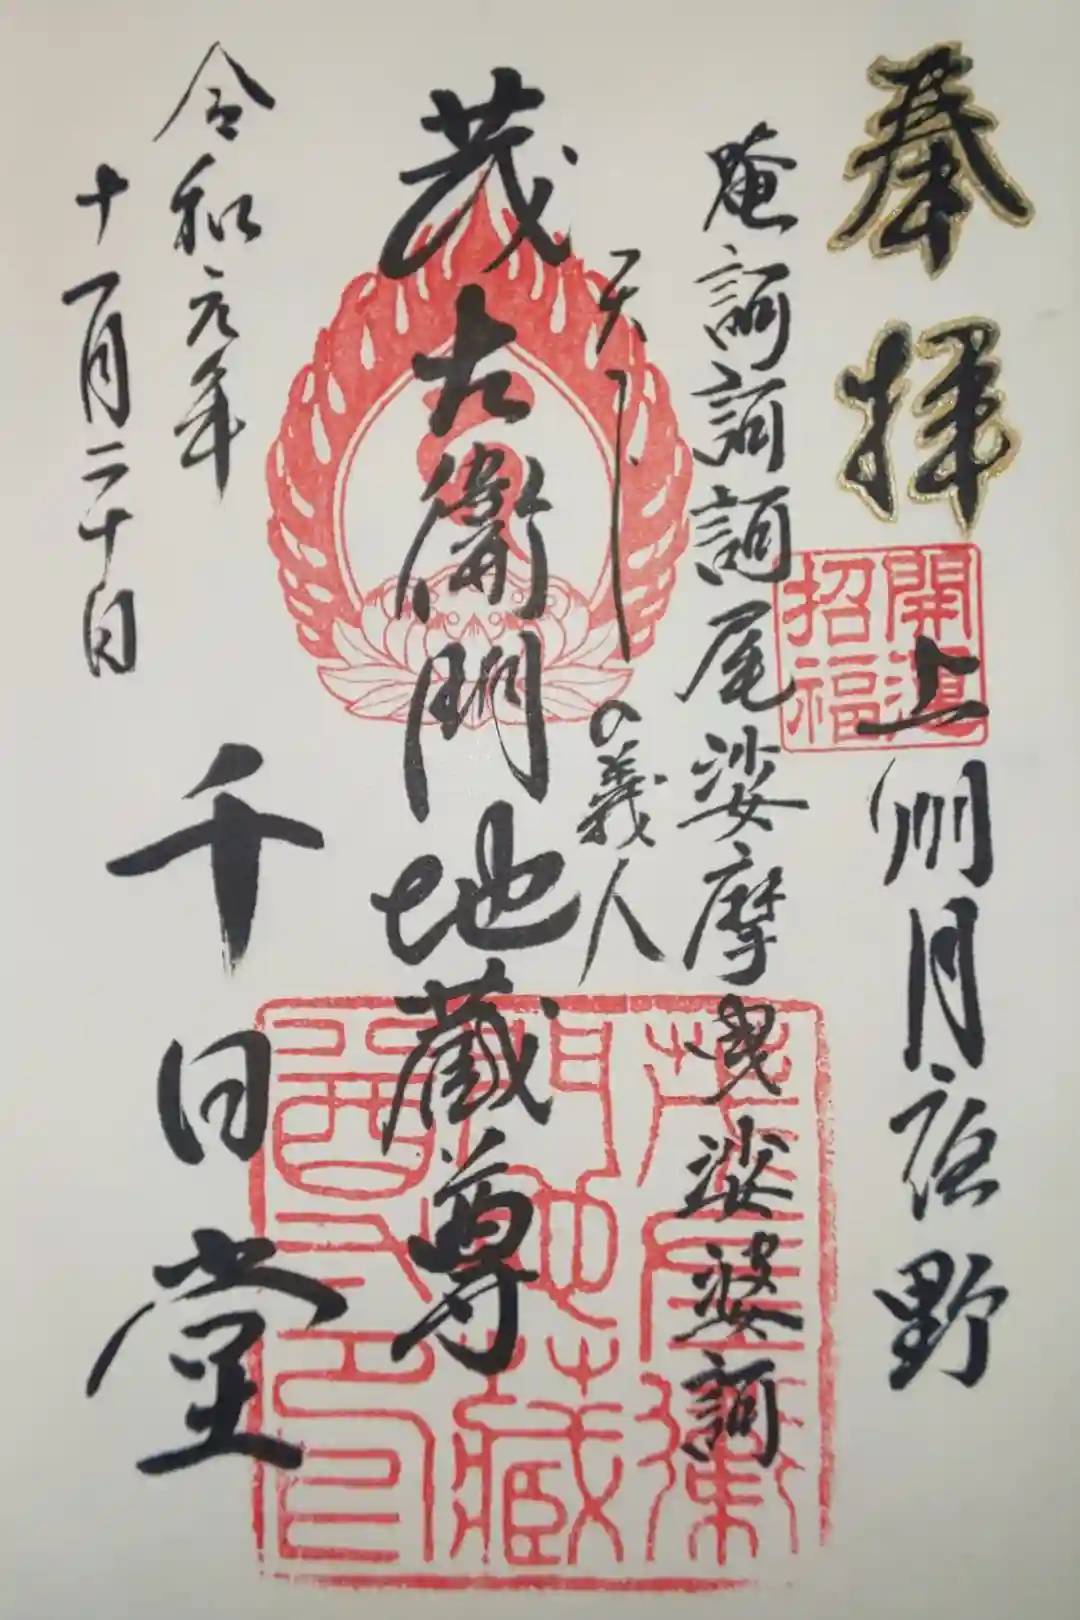 奉拝
開運
招福
上州月夜野
唵訶訶訶尾娑摩曳娑婆訶
天下の義人
茂左衛門地蔵尊
茂左衛
門地蔵
尊之印
令和元年
十一月二十日
千日堂